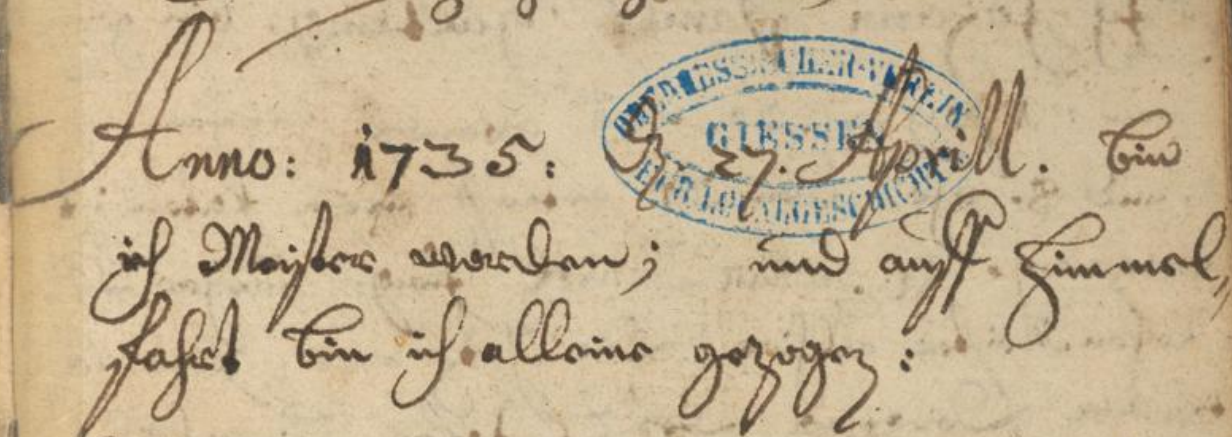 Anno: 1735: D 27. Aprill. bin
ich Meister worden; und auff Himmel,
fahrt bin ich alleine gezogen:
OBERHESSISCHER-VEREIN
GIESSEN
FÜR LOCALGESCHICHTE